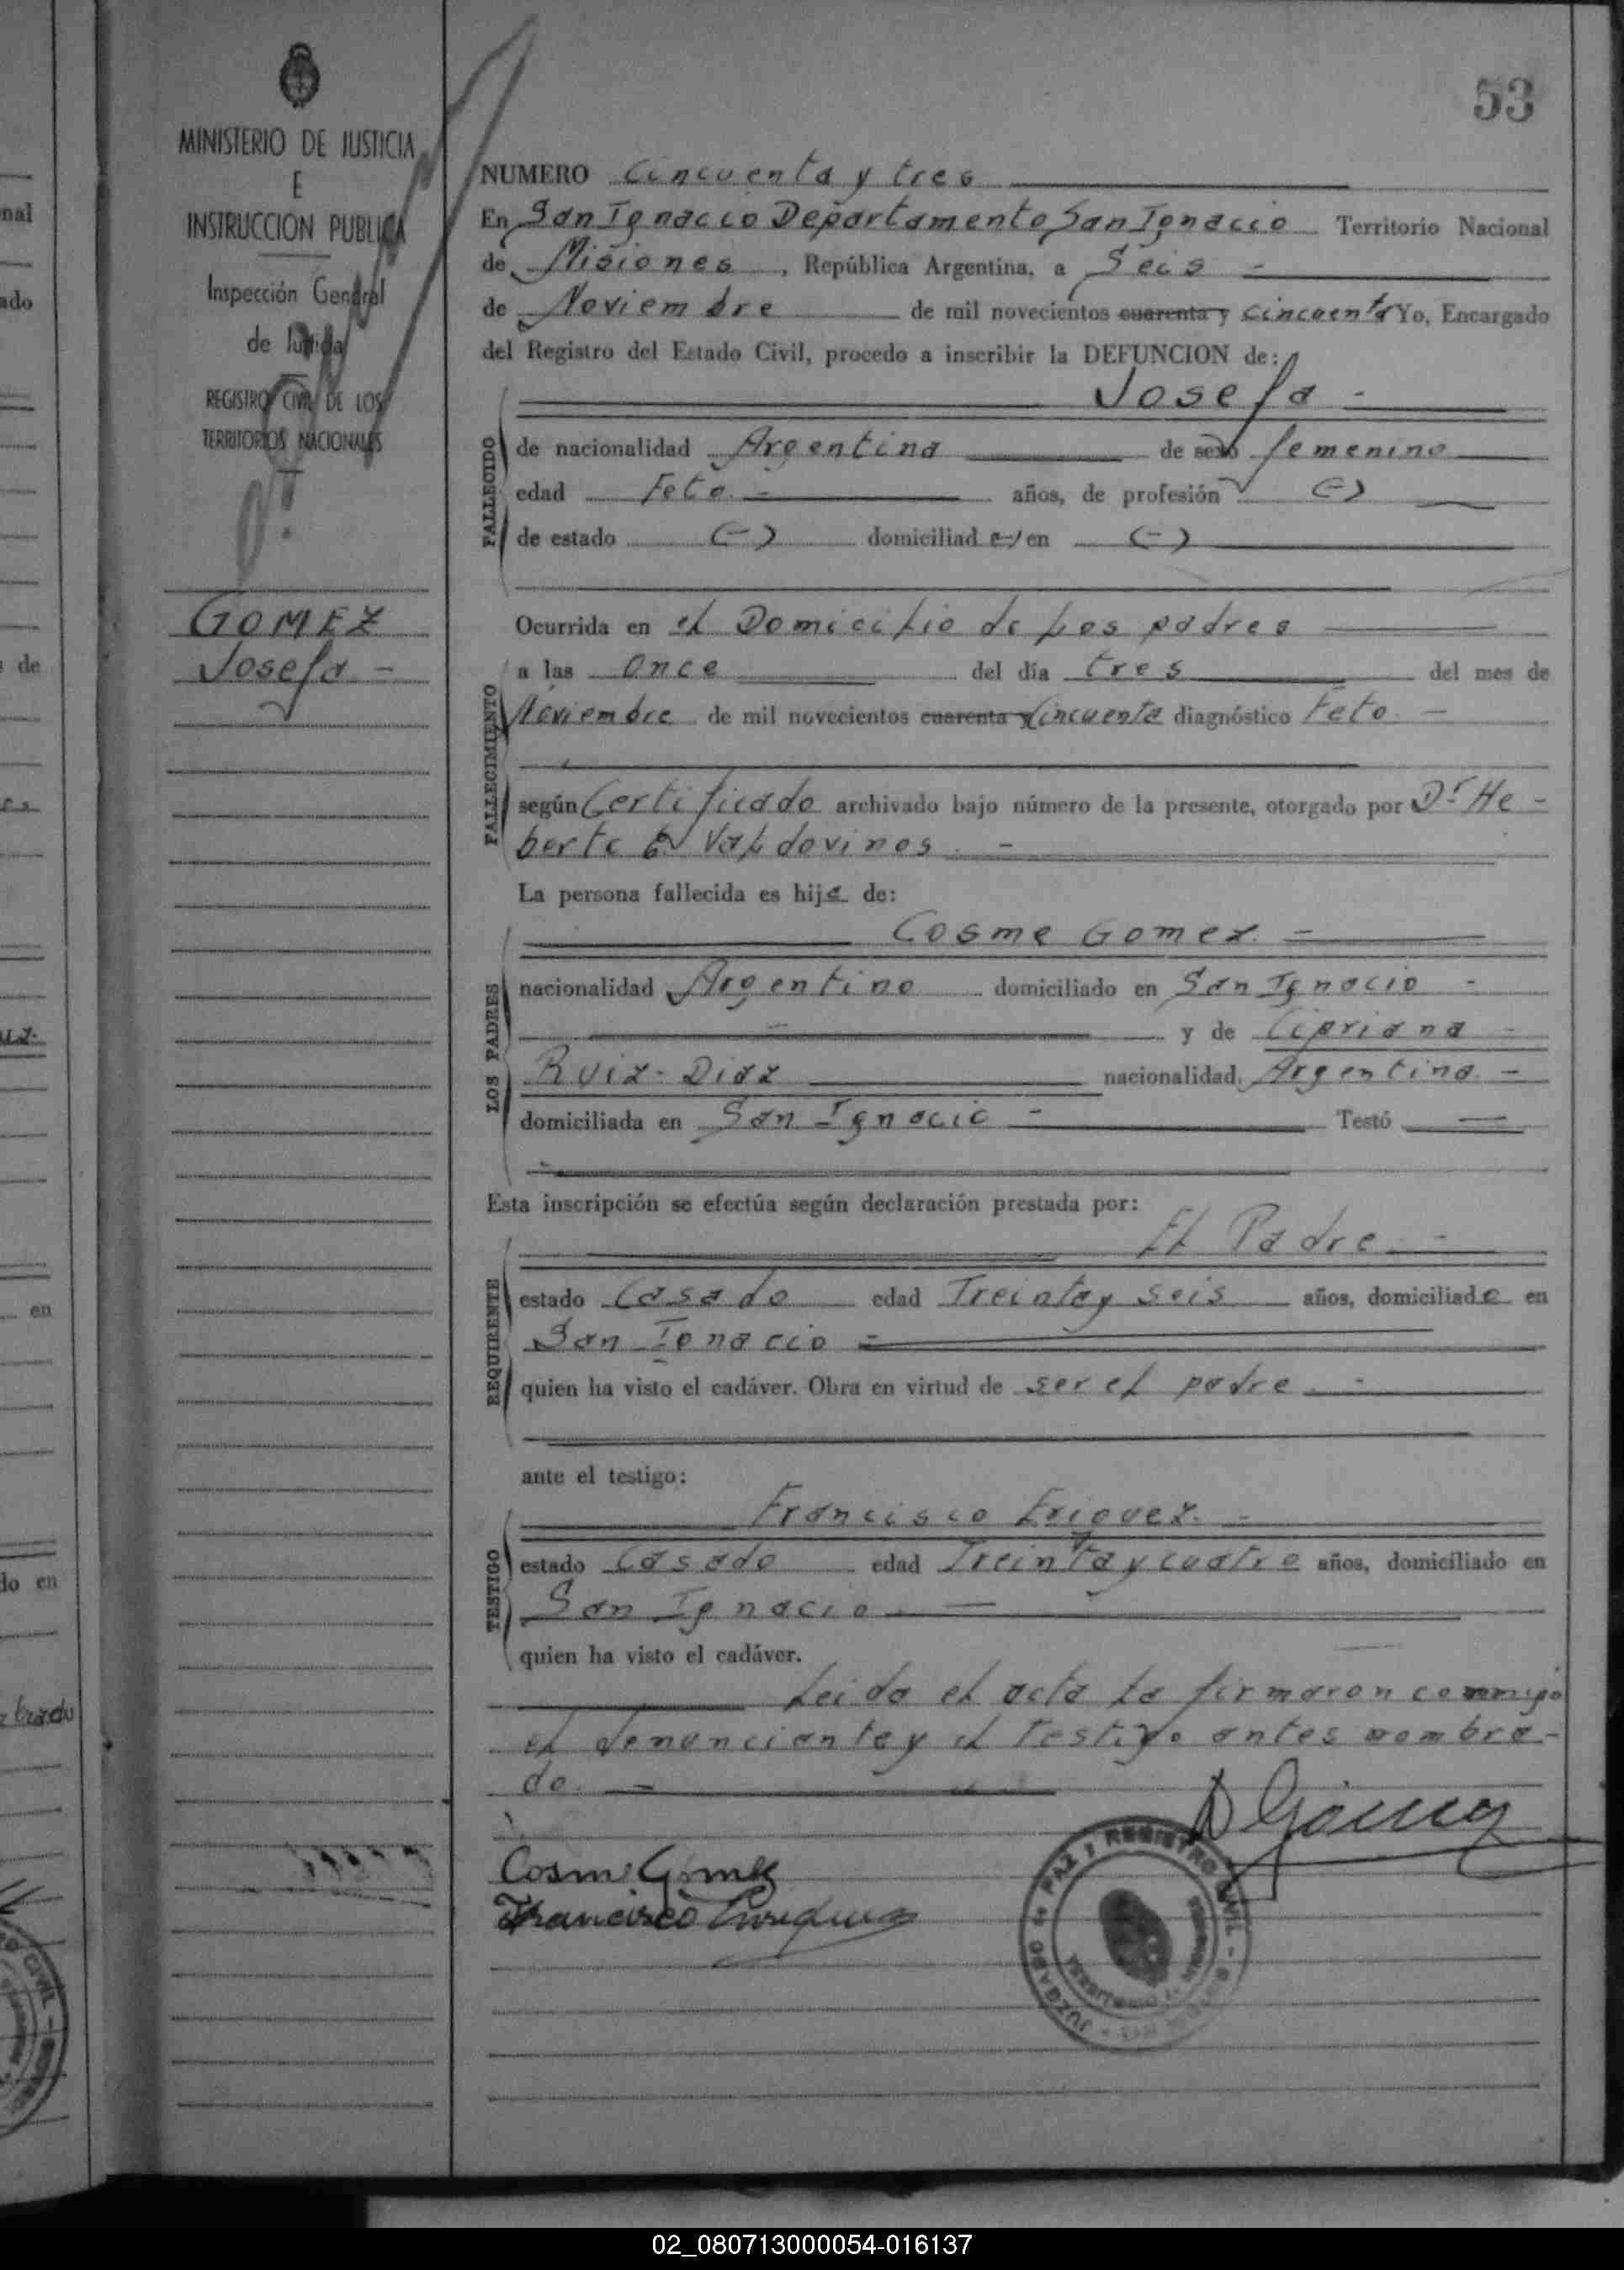 53
MINISTERIO DE JUSTICIA
E
INSTRUCCION PUBLICA
Inspección General
de Justicia
REGISTRO CIVIL DE LOS
TERRITORIOS NACIONALES
GOMEZ
Josefa -
NUMERO Cincuenta y tres
En San Ignacio Departamento San Ignacio Territorio Nacional
de Misiones, República Argentina, a Seis -
de Noviembre de mil novecientos cuarenta y cincuenta Yo, Encargado
del Registro del Estado Civil, procedo a inscribir la DEFUNCION de:
Josefa -
FALLECIDO
de nacionalidad Argentina de sexo femenino
edad Feto - años, de profesión (-)
de estado (-) domiciliad (-) en (-)
Ocurrida en el Domicilio de Los padres
FALLECIMIENTO
a las Once del día tres del mes de
Noviembre de mil novecientos cuarenta y Cincuenta diagnóstico Feto -
según Certificado archivado bajo número de la presente, otorgado por Dr He-
berto Valdovinos -
La persona fallecida es hija de:
LOS PADRES
Cosme Gomez -
nacionalidad Argentino domiciliado en San Ignacio -
y de Cipriana -
Ruiz-Diaz nacionalidad Argentina -
domiciliada en San Ignacio - Testó
Esta inscripción se efectúa según declaración prestada por:
REQUIRENTE
El Padre -
estado Casado edad Treinta y seis años, domiciliado en
San Ignacio -
quien ha visto el cadáver. Obra en virtud de ser el padre -
ante el testigo:
TESTIGO
Francisco Eriquez -
estado Casado edad Treinta y cuatro años, domiciliado en
San Ignacio -
quien ha visto el cadáver.
Leida el acta la firmaron conmigo
el denunciante y el testigo antes nombra-
do -
D Gómez
Cosme Gómez
Francisco Enriquez
JUZGADO de PAZ y REGISTRO CIVIL
02_080713000054-016137